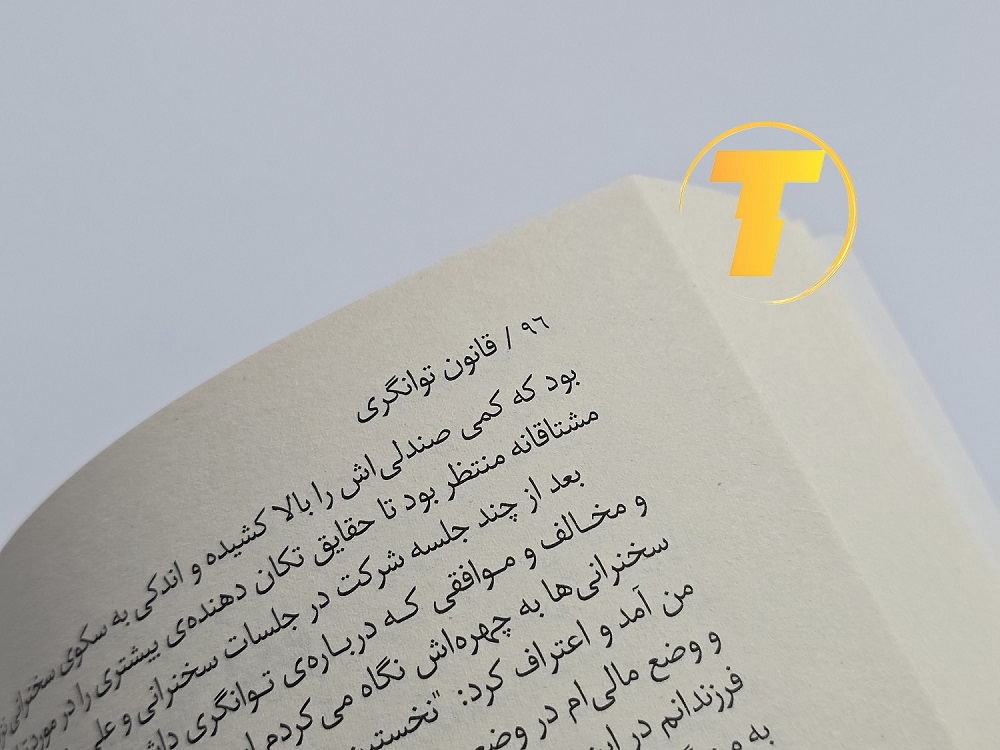 T
۹٦ / قانون توانگری
بود که کمی صندلی‌اش را بالا کشیده و اندکی به سکوی سخنرانی
مشتاقانه منتظر بود تا حقایق تکان دهنده‌ی بیشتری را در مورد
بعد از چند جلسه شرکت در جلسات سخنرانی و
و مخالف و موافقی که درباره‌ی توانگری
سخنرانی‌ها به چهره‌اش نگاه می‌کردم
من آمد و اعتراف کرد: "نخستین
و وضع مالی‌ام در وضع
فرزندانم در
به